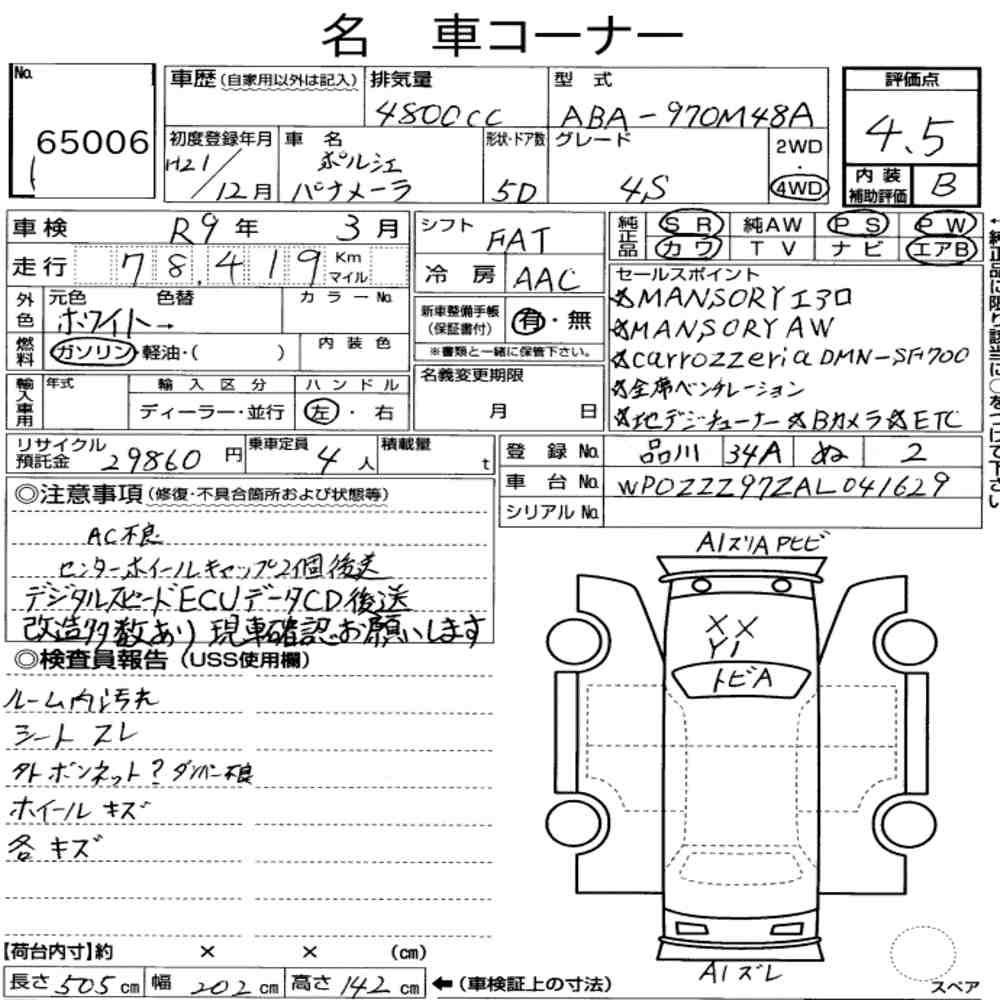 名 車コーナー
No. 65006
車歴(自家用以外は記入)
排気量 4800cc
型式 ABA-970M48A
評価点 4.5
初度登録年月 H21/12月
車名 ポルシェ パナメーラ
形状・ドア数 5D
グレード 4S
2WD・4WD
内装補助評価 B
車検 R9年 3月
走行 78,419 Km マイル
シフト FAT
冷房 AAC
純正品 SR 純AW PS PW
カワ TV ナビ エアB
←純正品に限り該当に○をつけて下さい
外色 元色 色替 カラーNo.
ホワイト→
燃料 ガソリン・軽油・( )
内装色
輸入車用 年式 輸入区分 ハンドル
ディーラー・並行 左・右
新車整備手帳(保証書付) 有・無
※書類と一緒に保管下さい。
名義変更期限
月 日
セールスポイント
☆MANSORYエアロ
☆MANSORY AW
☆carrozzeria DMH-SF700
☆全席ベンチレーション
☆地デジチューナー☆Bカメラ☆ETC
リサイクル預託金 29860円
乗車定員 4人
積載量 t
登録No. 品川 34A ぬ 2
車台No. WP0ZZZ97ZAL041629
シリアルNo.
◎注意事項(修復・不具合箇所および状態等)
AC不良
センターホイールキャップ2個後送
デジタルスピードECUデータCD後送
改造多数あり 現車確認お願いします
◎検査員報告(USS使用欄)
ルーム内汚れ
シートスレ
外ボンネット?ダンパー不良
ホイールキズ
各キズ
A1ズリAPヒビ
X X
Y1
トビA
A1ズレ
スペア
【荷台内寸】約 × × (cm)
長さ 505 cm 幅 202 cm 高さ 142 cm ←(車検証上の寸法)